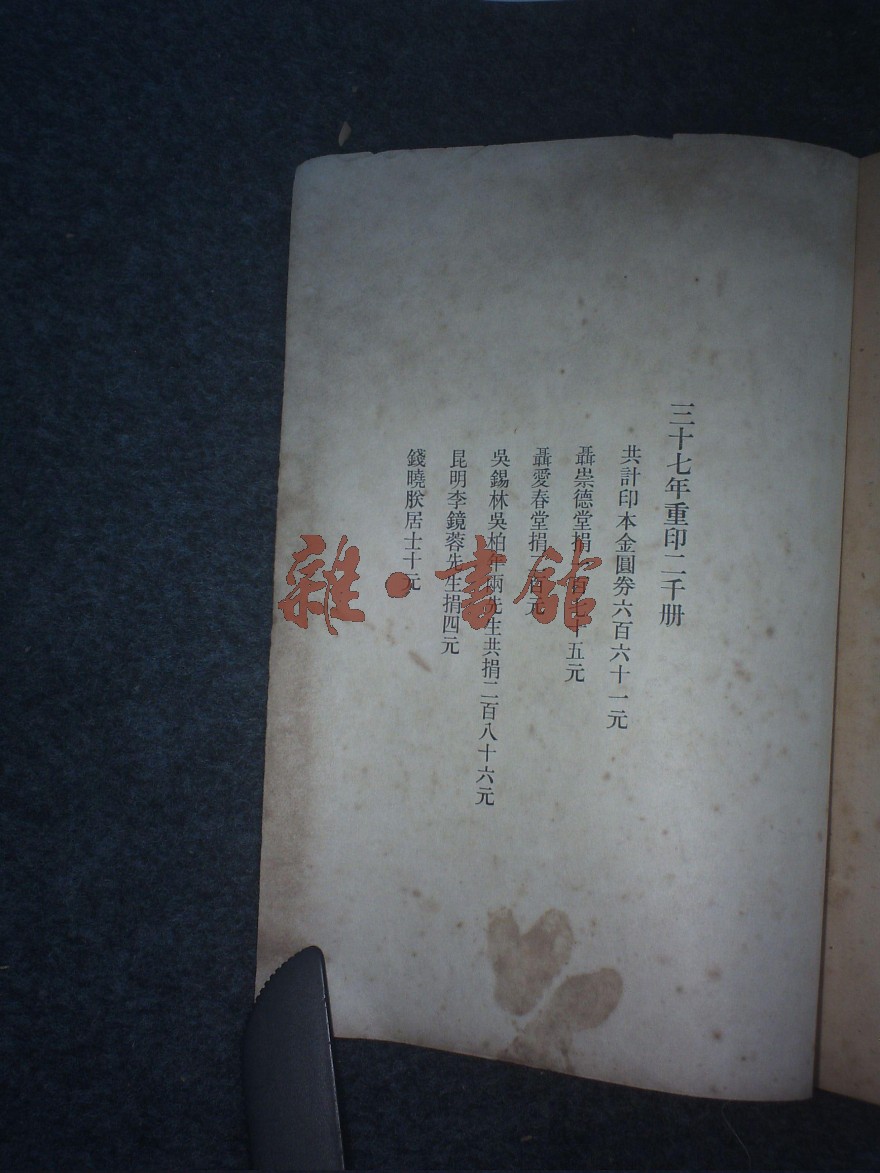 三十七年重印二千册
共計印本金圓券六百六十一元
聶崇德堂捐百十五元
聶愛春堂捐百元
吳錫林吳柏年兩先生共捐二百八十六元
昆明李鏡蓉先生捐四元
錢曉居士十元
雜·書館